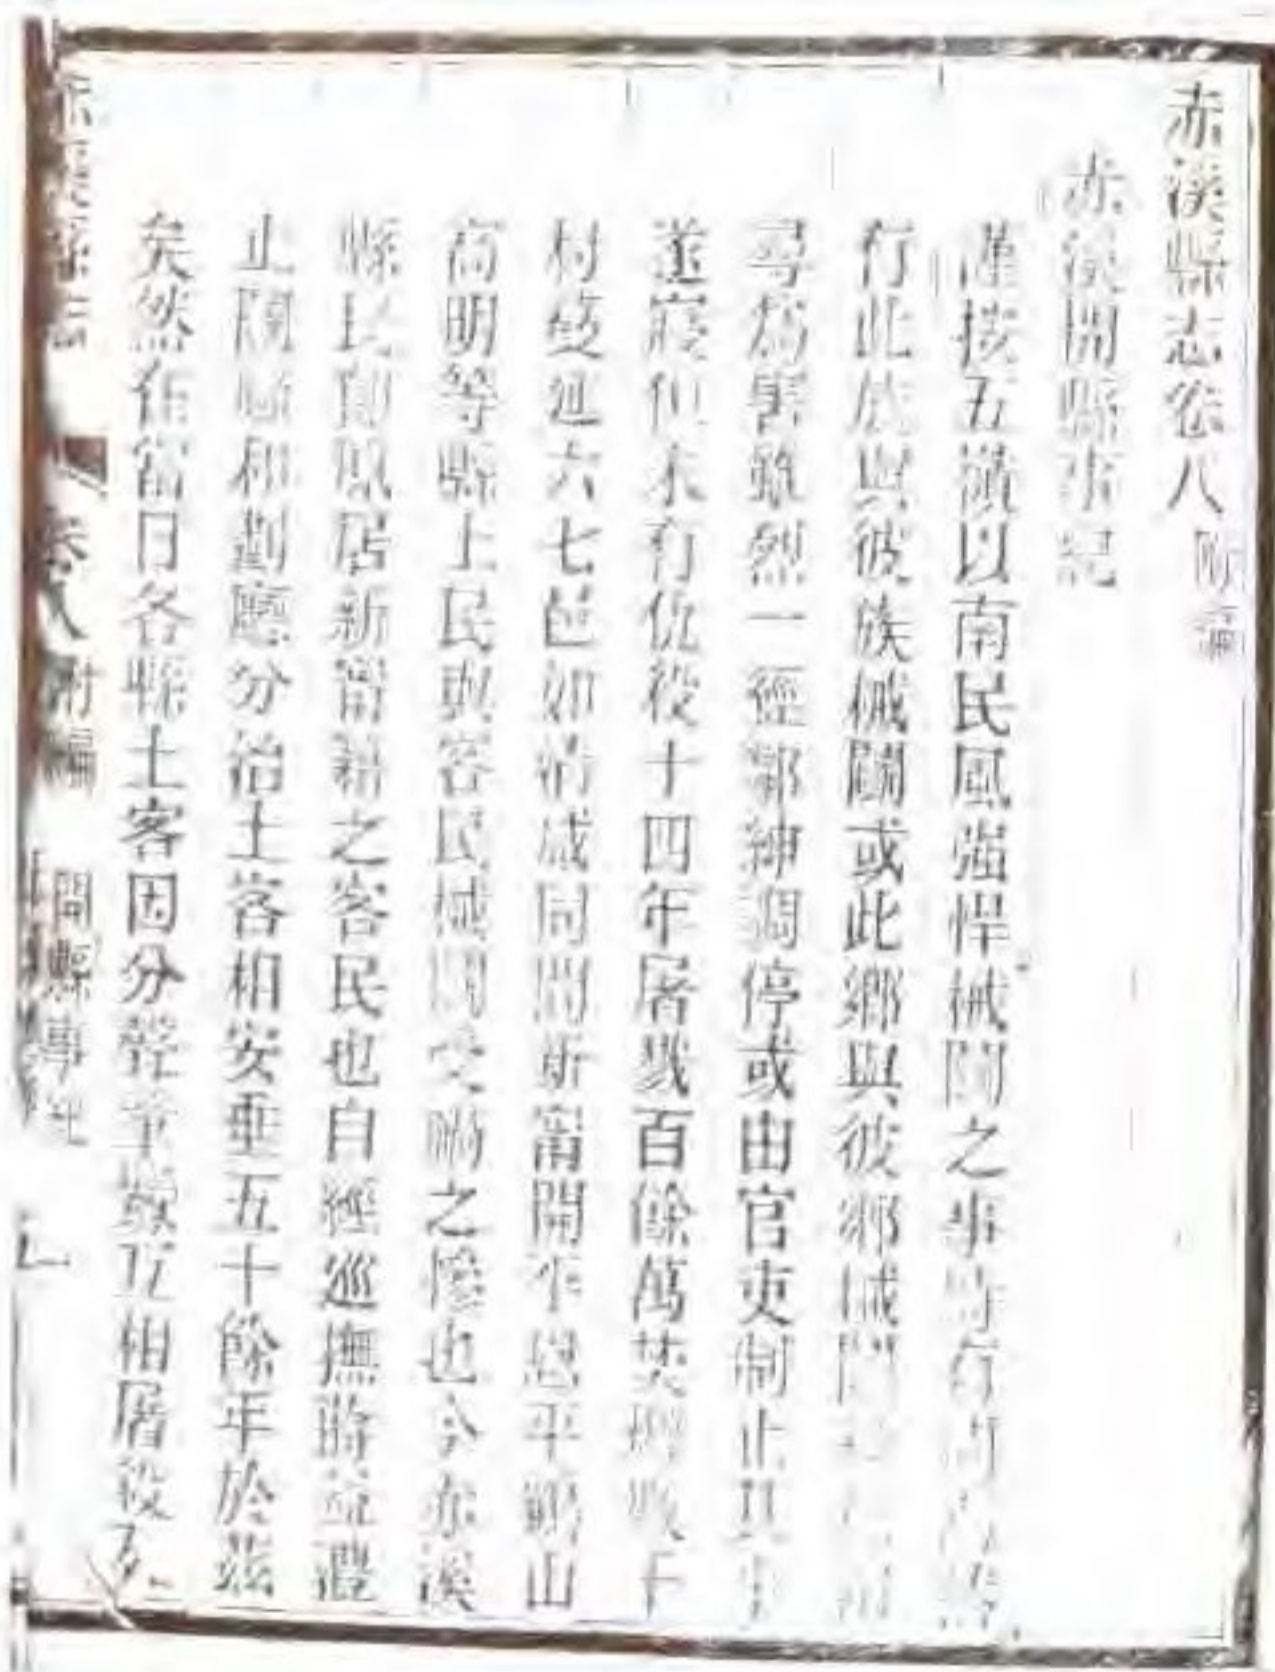 赤溪縣志卷八 附編
赤溪開縣事紀
謹按五嶺以南民風強悍械鬪之事時有所
有此族與彼族械鬪或此鄉與彼鄉械鬪
尋爲害雖烈一經鄰紳調停或由官吏制止其事
遂寢但未有仇殺十四年屠戮百餘萬焚燬數千
村蔓延六七邑如淸咸同間新甯開平恩平鶴山
高明等縣土民與客民械鬪受禍之慘也今赤溪
縣民卽原居新甯籍之客民也自經巡撫蔣益澧
止鬪聯和劃廳分治土客相安垂五十餘年於茲
矣然在當日各縣土客因分聲氣致互相屠殺
赤溪縣志 卷八附編 開縣事紀 一